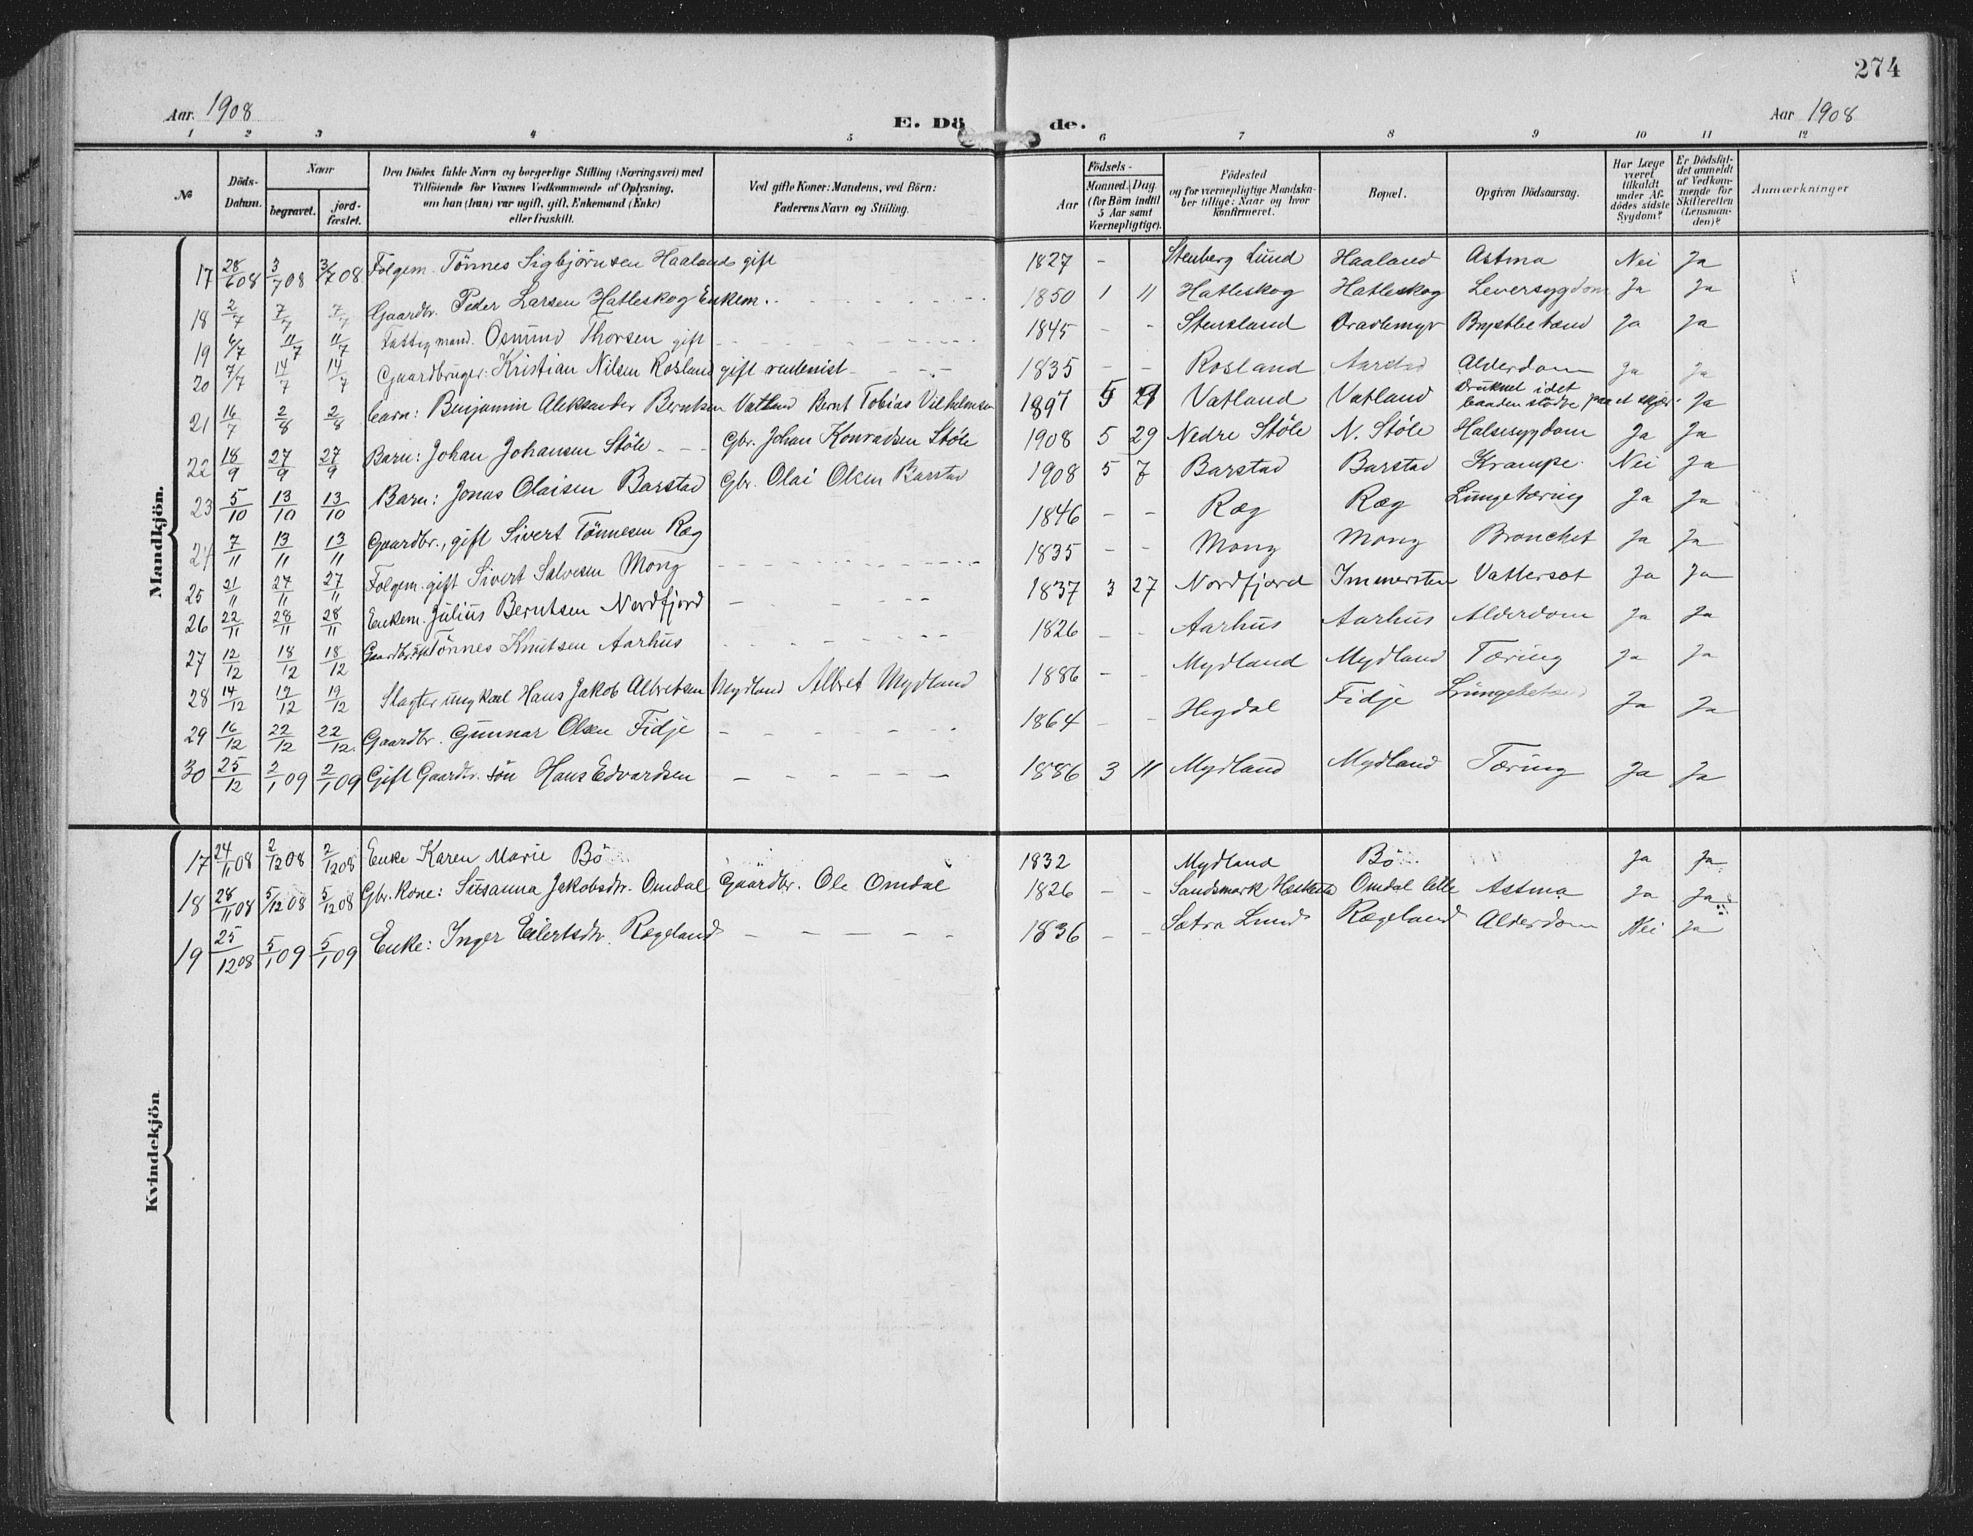 274
Aar. 1908
E. Dö
de.
Aar 1908
1 2 3 4 5 6 7 8 9 10 11 12
No
Döds-Datum.
Naar
begravet.
jord-fæstet.
Den Dödes fulde Navn og borgerlige Stilling (Næringsvei) med
Tilföiende for Voxnes Vedkommende af Oplysning,
om han (hun) var ugift, gift, Enkemand (Enke)
eller fraskilt.
Ved gifte Koner: Mandens, ved Börn:
Faderens Navn og Stilling.
Födsels-
Aar
Maaned. Dag.
(for Börn indtil
5 Aar samt
Værnepligtige).
Födested
og for værnepligtige Mandska-
ber tillige: Naar og hvor
konfirmeret.
Bopæl.
Opgiven Dödsaarsag.
Har Læge
været
tilkaldt
under Af-
dödes sidste
Sygdom?
Er Dödsfal-
det anmeldt
af Vedkom-
mende for
Skifteretten
(Lensman-
den)?
Anmærkninger
Mandkjön.
17 28/6 08 3/7 08 3/7 08 Folgem. Tönnes Sigbjörnsen Haaland gift 1827 - Stenberg Lund Haaland Astma Nei Ja
18 2/7 7/7 7/7 Gaardbr. Peder Larsen Hatleskog Enkem. 1850 1 11 Hatleskog Hatleskog Leversygdom Ja Ja
19 6/7 11/7 11/7 Fattigmand. Osmund Thorsen gift 1845 - - Stensland Dradlemyr Brystbetænd Ja Ja
20 7/7 14/7 14/7 Gaardbruger: Kristian Nilsen Rosland gift 1835 - - Rosland Aarstad Alderdom Ja Ja
21 16/7 2/8 2/8 barn: Benjamin Aleksander Berntsen Vatland Bernt Tobias Vilhelmsen 1897 5 Vatland Vatland Druknet idet baaden stödte paa et skjær. Ja
22 18/9 27/9 27/9 Barn: Johan Johansen Stöle - - Gbr. Johan Konradsen Stöle 1908 5 29 Nedre Stöle N. Stöle Halssygdom Ja Ja
23 5/10 13/10 13/10 Barn: Jonas Olaisen Barstad Gbr. Olai Olsen Barstad 1908 5 7 Barstad Barstad Krampe. Nei Ja
24 7/11 13/11 13/11 Gaardbr., gift Sivert Tönnesen Ræg 1846 - - Ræg Ræg Lungetæring Ja Ja
25 21/11 27/11 27/11 Folgem. gift Sivert Salvesen Mong 1835 - - Mong Mong Bronchet Ja Ja
26 22/11 28/11 28/11 Enkem. Julius Berntsen Nordfjord 1837 3 27 Nordfjord Immersten Vattersot Ja Ja
27 12/12 18/12 18/12 Gaardbr. Tönnes Knutsen Aarhus 1826 - - Aarhus Aarhus Alderdom Ja Ja
28 14/12 19/12 19/12 Slagter ungkarl Hans Jakob Albretsen Mydland Albret Mydland 1886 - - Mydland Mydland Tæring Ja Ja
29 16/12 22/12 22/12. Gaardbr. Gunnar Olsen Fidje 1864 - - Hegdal Fidje Ja Ja
30 25/12 2/1 09 2/1 09 Gift Gaardbr. sön Hans Edvardsen 1886 3 11 Mydland Mydland Tæring Ja Ja
Kvindekjön
17 24/11 08 2/12 08 2/12 08 Enke Karen Marie Bö 1832 Mydland Bö Ja Ja
18 28/11 08 5/12 08 5/12 08 Gbr. kone: Susanna Jakobsdtr. Omdal Gaardbr. Ole Omdal 1826 - - Sandsmark Omdal Astma Ja Ja
19 25/12 08 5/1 09 5/1 09 Enke: Inger Eilertsdtr. Rægeland 1836 - - Sætra Lund Rægeland Alderdom Nei Ja